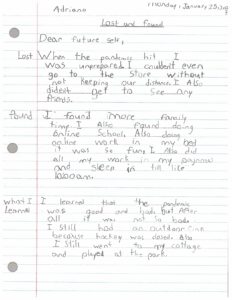 Adriano
Monday, January 25,
Lost and found
Dear future self,
Lost When the pandemic hit I
was unprepared. I couldent even
go to the store without
not keeping our distance. I Also
dident get to see any
friends.
found I found more family
time. I Also found doing
online School. Also doing
online work in my bed
it was so fun. I Also did
all my work in my pajamas
and I sleep in till like
10:00am.
what I I learned that the pandemic
learned was good and bad. But After
all it was not so bad.
I still had an outdoor rink
because hockey was closed. Also
I still went to my cottage
and played at the park.